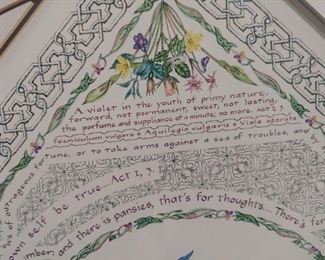 A violet in the youth of primy nature,
forward, not permanent, sweet, not lasting,
the perfume and suppliance of a minute; no more. Act I, 3.
Foeniculum vulgare & Aquilegia vulgaris & Viola odorata
ws of outrageous fortune, or to take arms against a sea of troubles, and by
own self be true.... Act I, 3.
mber; and there is pansies, that's for thoughts... There's fe